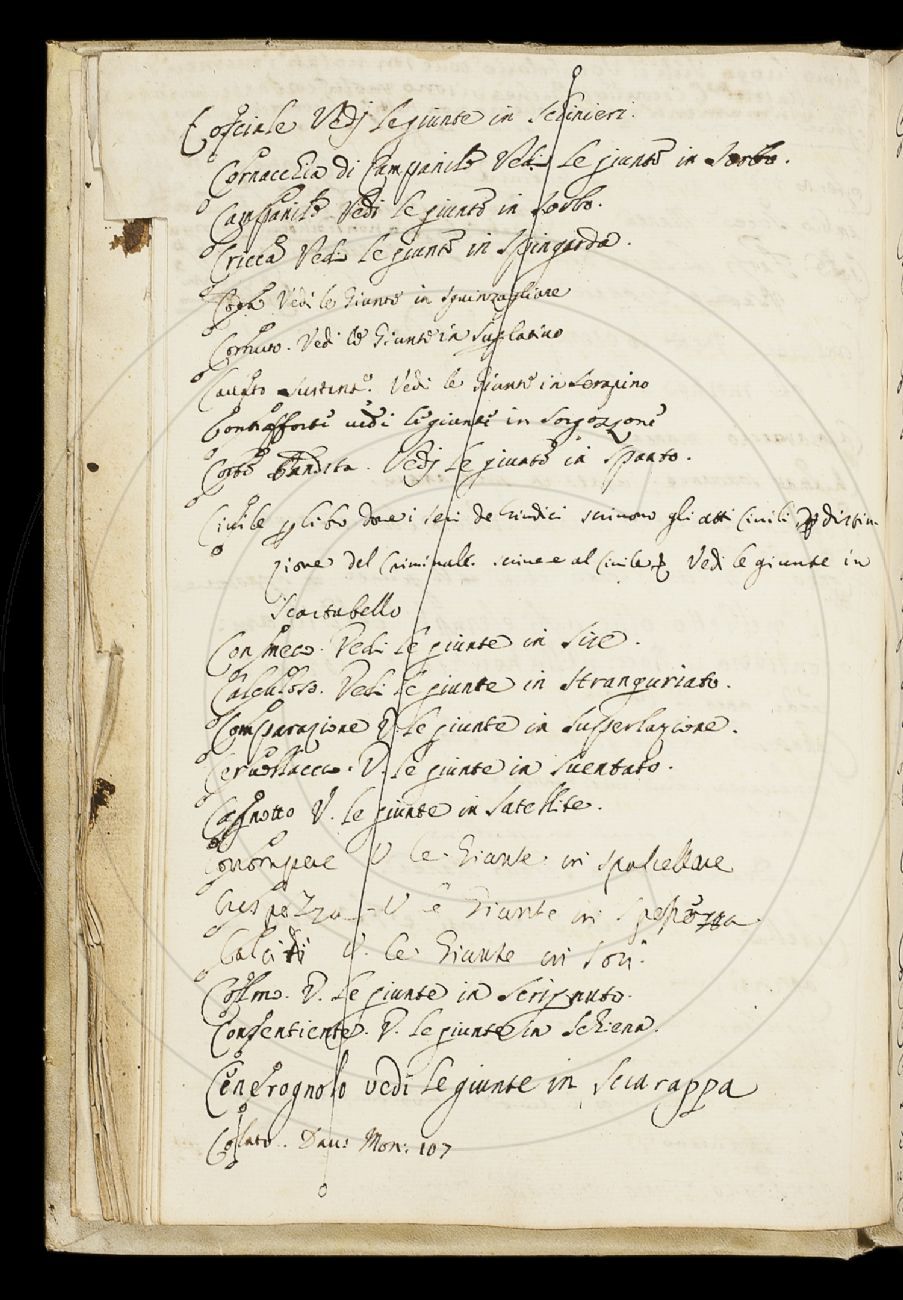 Cosciale Vedj le giunte in Schinieri.
Cornacchia di Campanile Vedi le giunte in Sorbo.
Campanile Vedi le giunte in Sorbo.
Cricca Vedi le giunte in Spingarda.
Vedi le Giunte in Sguinzagliare
Cornuto. Vedi le Giunte in Suglatino
Vedi le Giunte in Serapino
Contrafforte vedi le giunte in Sorgozzone
Corte bandita. Vedj le giunte in Spanto.
Civile libro dove i Seri de Giudici scrivono gli atti Civili distin-
zione del Criminale. scrivere al Civile Vedi le giunte in
Scartabello
Vedi le giunte in Sice.
Calculoso. Vedi le giunte in Stranguriato.
Comparazione V. le giunte in Supperlazione.
V. le giunte in Sventato.
Cagnotto V. le giunte in Satellite.
V le Giunte in Spulcellare
V le Giunte in Spessezza
V. le Giunte in Sori.
V. le giunte in Scrignuto.
Consentiente. V. le giunte in Schiena.
Cenerognolo vedi le giunte in Sciarappa
Colato. Dav: Mon: 107